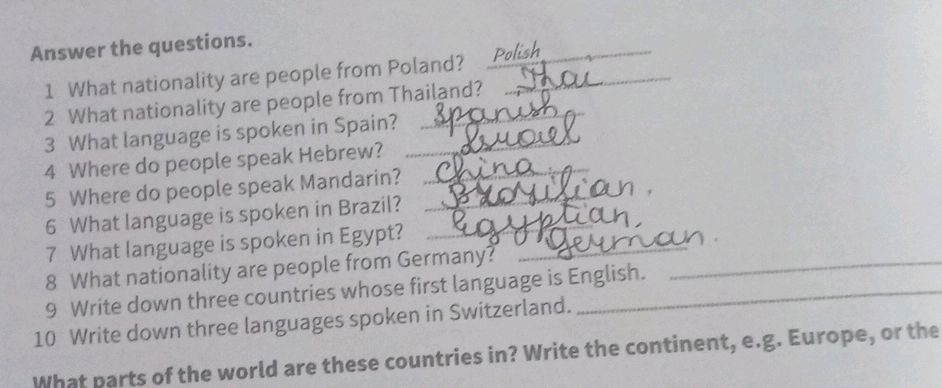 Answer the questions.
1 What nationality are people from Poland? Polish
2 What nationality are people from Thailand? Thai
3 What language is spoken in Spain? Spanish
4 Where do people speak Hebrew? Israel
5 Where do people speak Mandarin? China
6 What language is spoken in Brazil? Brazilian.
7 What language is spoken in Egypt? Egyptian.
8 What nationality are people from Germany? German.
9 Write down three countries whose first language is English.
10 Write down three languages spoken in Switzerland.
What parts of the world are these countries in? Write the continent, e.g. Europe, or the